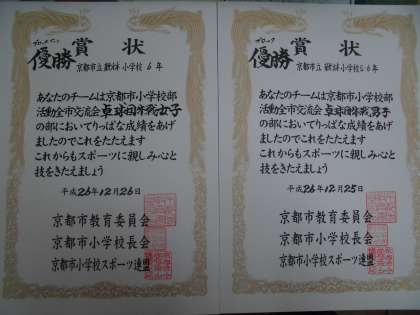 ブロック
優勝
賞状
京都市立 小学校 6年
あなたのチームは京都市小学校部
活動全市交流会 卓球団体戦女子
の部においてりっぱな成績をあげ
ましたのでこれをたたえます
これからもスポーツに親しみ心と
技をきたえましょう
平成26年12月26日
京都市教育委員会
京都市小学校長会
京都市小学校スポーツ連盟
ブロック
優勝
賞状
京都市立 小学校 6年
あなたのチームは京都市小学校部
活動全市交流会 卓球団体戦男子
の部においてりっぱな成績をあげ
ましたのでこれをたたえます
これからもスポーツに親しみ心と
技をきたえましょう
平成26年12月25日
京都市教育委員会
京都市小学校長会
京都市小学校スポーツ連盟